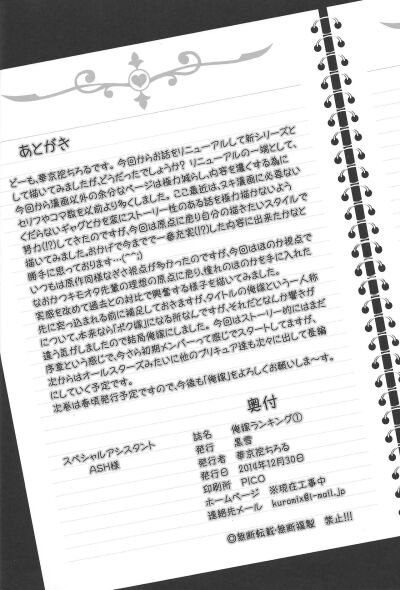 あとがき
どーも、華京院ちろるです。今回からお話をリニューアルして新シリーズと
して描いてみましたが、どうだったでしょうか? リニューアルの一端として、
今回から漫画以外の余分なページは極力減らし、内容を濃くする為に
セリフやコマ数を以前より多くしました。ここ最近は、ヌキ漫画に必要ない
くだらないギャグとかを変にストーリー性のある話を極力描かないよう
努力(!?)してきたのですが、今回は原点に戻り自分の描きたいスタイルで
描いてみました。おかげで今までで一番充実(!?)した内容に出来たかなと
勝手に思っております…(^^;)
いつもは原作同様なぎさ視点が多かったのですが、今回はほのか視点で
なおかつキモオタ先輩の理想の原点に戻り、憧れのほのかを手に入れた
実感を改めて過去との対比で興奮する様子を描いてみました。
先に突っ込まれる前に補足しておきますが、タイトルの俺嫁という一人称
について、本来なら「ボク嫁」になる所なんですが、それだとなんか響きが
違う気がしましたので結局俺嫁にしました。今回はストーリー的にはまだ
序章という感じで、今さら初期メンバーって感じでスタートしてますが、
次からはオールスターズみたいに他のプリキュア達も次々に出して長編
にしていく予定です。
次巻は春頃発行予定ですので、今後も「俺嫁」をよろしくお願いしま〜す。
スペシャルアシスタント
ASH様
奥付
誌名 俺嫁ランキング①
発行 黒雪
発行者 華京院ちろる
発行日 2014年12月30日
印刷所 PICO
ホームページ ※現在工事中
連絡先メール kuromix@i-mail.jp
◎無断転載・無断複製 禁止!!!